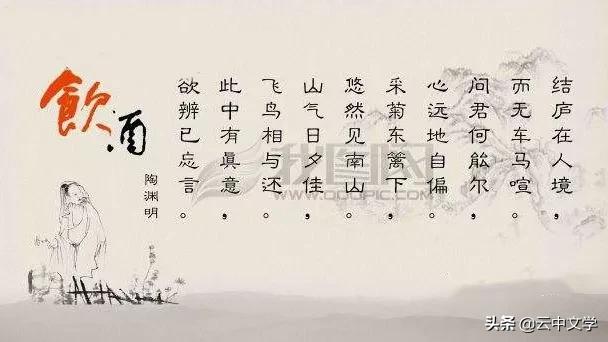 结庐在人境，
而无车马喧。
问君何能尔，
心远地自偏。
采菊东篱下，
悠然见南山。
山气日夕佳，
飞鸟相与还。
此中有眞意，
欲辨已忘言。
飲酒
陶渊明
头条 @云中文学